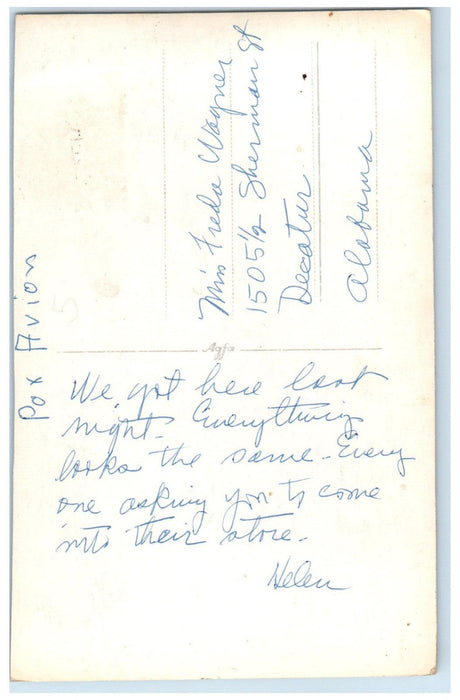 Pox Avion
Miss Freda Wagner
1505 1/2 Sherman St
Decatur
Alabama
Agfa
We got here last
night. Everything
looks the same - Every
one asking you to come
into their store.
Helen